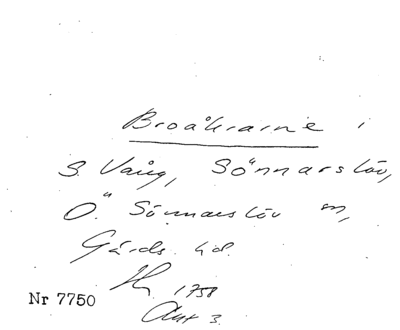 Broåkrarne i
S. Vång, Sönnarslöv,
Ö. Sönnarslöv sn,
Gärds hd.
1758
Akt 3.
Nr 7750